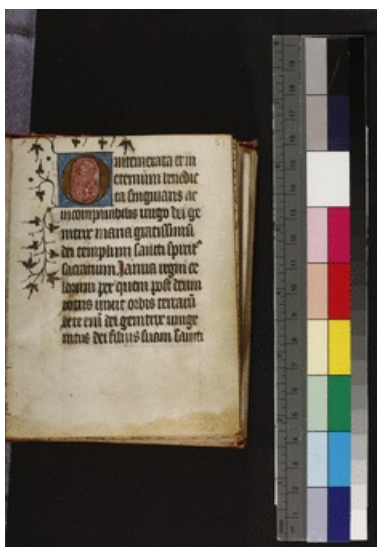 O intemerata et in
eternum benedic
ta singularis ac
incomparabilis virgo dei ge
nitrix maria gratissimū
dei templum sancti spiritꝰ
sacrarium Ianua regni ce
lorum per quem post deum
totus vivit orbis terrarū
te enī dei genitrix unige
nitus dei filius suum sancti